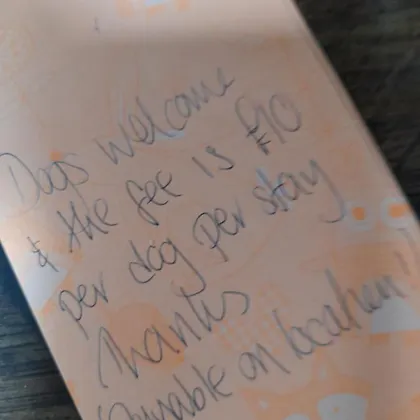 Dogs welcome
& the fee is £10
per dog per stay
Thanks
Payable on location!